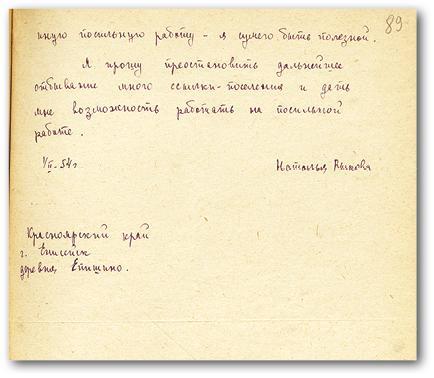 89
иную посильную работу - я сумею быть полезной.
Я прошу преостановить дальнейшее
отбывание мною ссылки-поселения и дать
мне возможность работать на посильной
работе.
1/II-54 г
Наталья Рыкова
Красноярский край
г. Енисейск
деревня Епишино.